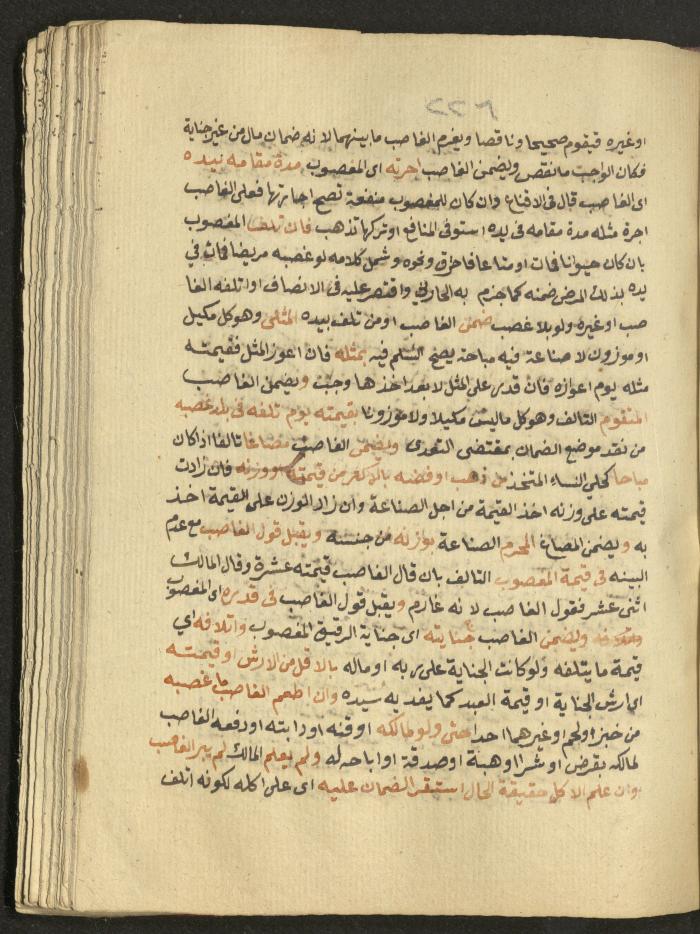 ٢٢٦
او غيره فيقوم صحيحا وناقصا ويغرم الغاصب ما بينهما لانه ضمان مال من غير جناية
فكان الواجب ما نقص ويضمن الغاصب اجرته اى المغصوب مدة مقامه بيده
اى الغاصب قال فى الاقناع وان كان للمغصوب منفعة تصح اجارتها فعلى الغاصب
اجرة مثله مدة مقامه فى يده استوفى المنافع او تركها تذهب فان تلف المغصوب
بان كان حيوانا فمات او متاعا فاحترق ونحوه وشمل كلامه لو غصبه مريضا فمات في
يده بذلك المرض ضمنه كما جزم به الحارثي واقتصر عليه فى الانصاف او اتلفه الغا
صب او غيره ولو بلا غصب ضمن الغاصب او من تلف بيده المثلى وهو كل مكيل
او موزون لا صناعة فيه مباحة يصح السلم فيه بمثله فان اعوز المثل فقيمته
مثله يوم اعوازه فان قدر على المثل لا بعد اخذها وجب ويضمن الغاصب
المتقوم التالف وهو كل ما ليس مكيلا ولا موزونا بقيمته يوم تلفه فى بلد غصبه
من نقد موضع الضمان بمقتضى التعدى ويضمن الغاصب مصاغا تالفا اذا كان
مباحا كحلي النساء المتخذ من ذهب او فضة بالاكثر من قيمته ووزنه فان زادت
قيمته على وزنه اخذ القيمة من اجل الصناعة وان زاد الوزن على القيمة اخذ
به ويضمن المصاغ المحرم الصناعة بوزنه من جنسه ويقبل قول الغاصب مع عدم
البينه فى قيمة المغصوب التالف بان قال الغاصب قيمته عشرة وقال المالك
اثنى عشر فقول الغاصب لانه غارم ويقبل قول الغاصب فى قدره اى المغصوب
ويضمن الغاصب جنايته اى جناية الرقيق المغصوب واتلافه اي
قيمة ما يتلفه ولو كانت الجناية على ربه او ماله بالاقل من الارش او قيمته
اى ارش الجناية او قيمة العبد كما يفديه سيده وان اطعم الغاصب ما غصبه
من خبز او لحم او غيرهما احدا حتى ولو لمالكه او قنه او دابته او دفعه الغاصب
لمالكه بقرض او شرا او هبة او صدقة او اباحه له ولم يعلم المالك لم يبر الغاصب
وان علم الاكل حقيقة الحال استقر الضمان عليه اى على اكله لكونه اتلف